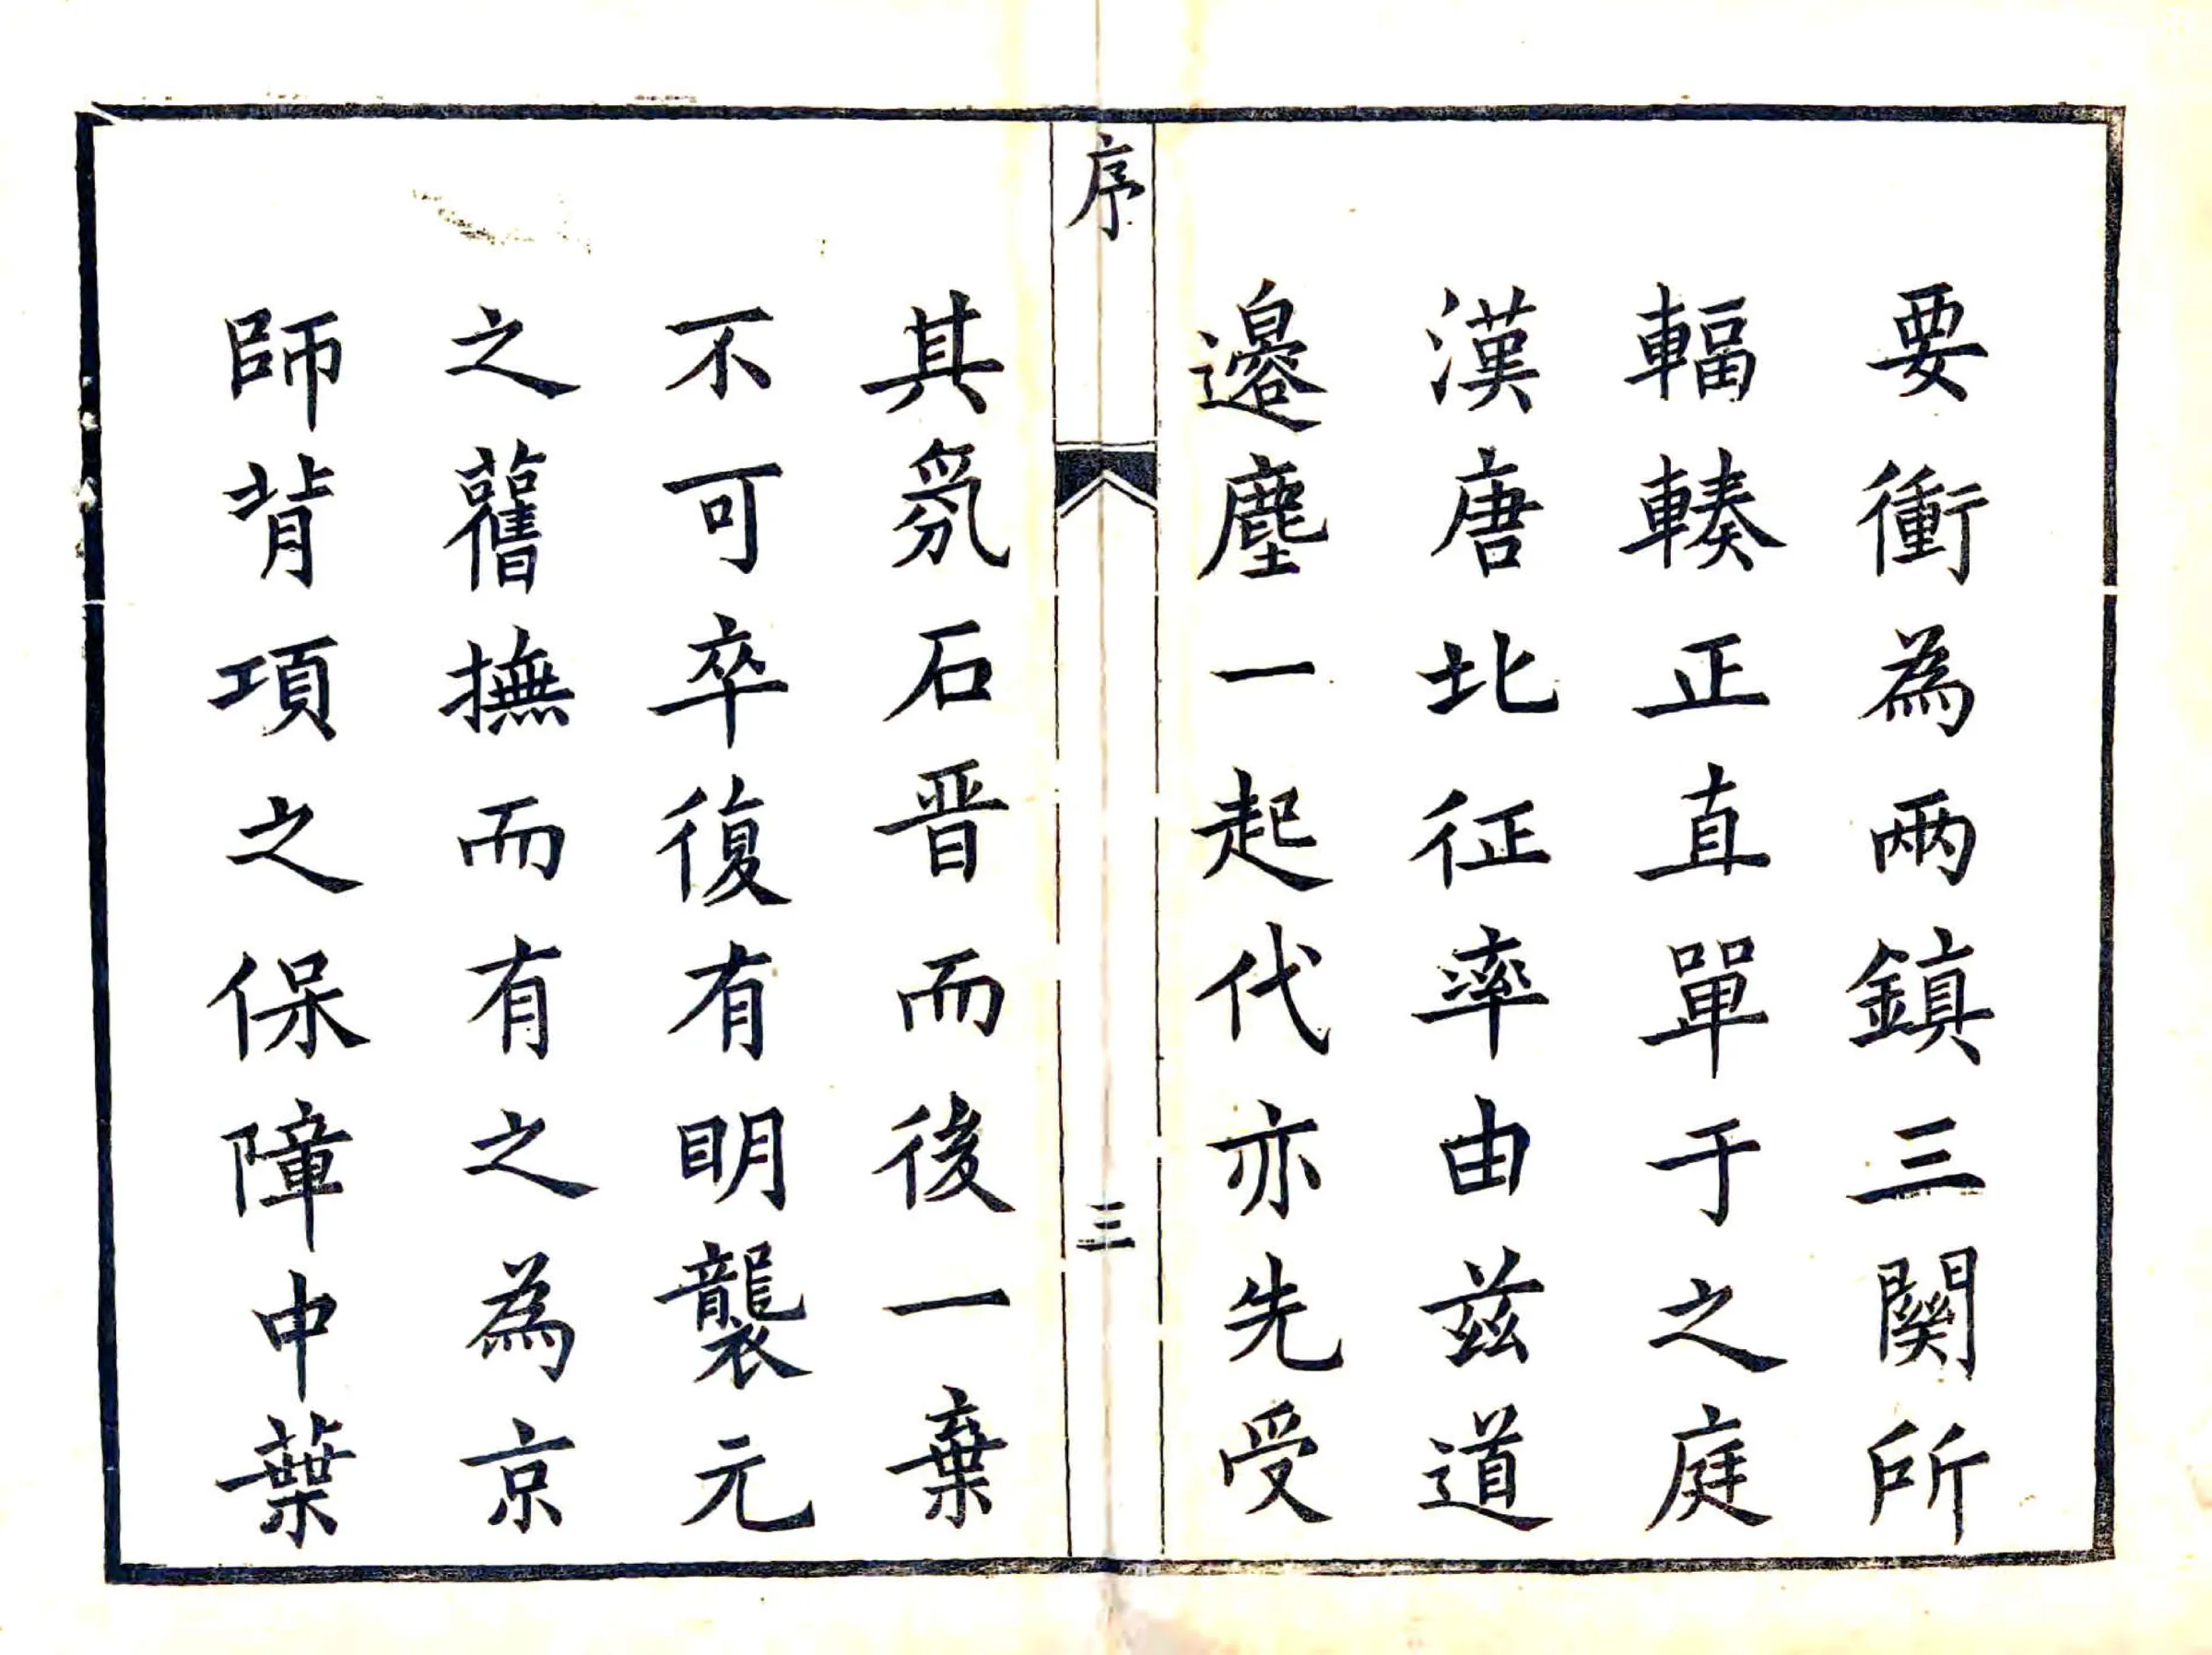 要衝為兩鎮三関所
輻輳正直單于之庭
漢唐北征率由兹道
邊塵一起代亦先受
序
三
其氛石晋而後一棄
不可卒復有明襲元
之舊撫而有之為京
師背項之保障中葉